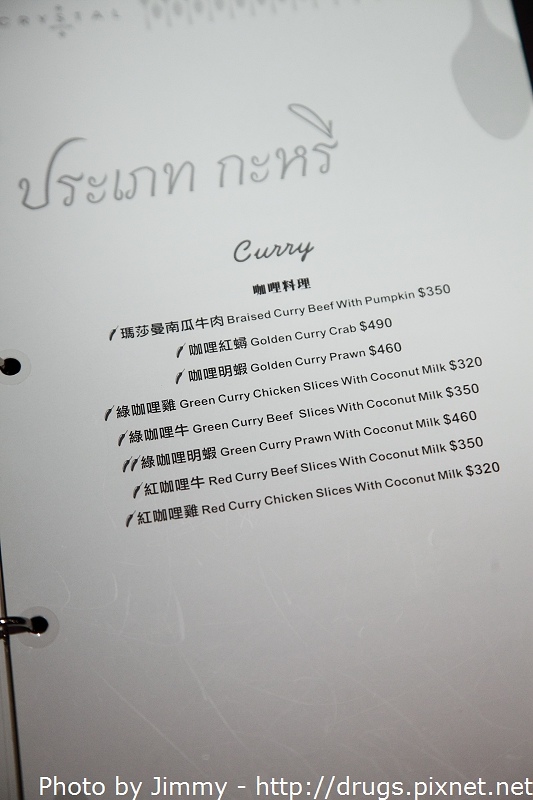 CRYSTAL
ประเภท กะหรี่
Curry
咖哩料理
瑪莎曼南瓜牛肉 Braised Curry Beef With Pumpkin $350
咖哩紅蟳 Golden Curry Crab $490
咖哩明蝦 Golden Curry Prawn $460
綠咖哩雞 Green Curry Chicken Slices With Coconut Milk $320
綠咖哩牛 Green Curry Beef Slices With Coconut Milk $350
綠咖哩明蝦 Green Curry Prawn With Coconut Milk $460
紅咖哩牛 Red Curry Beef Slices With Coconut Milk $350
紅咖哩雞 Red Curry Chicken Slices With Coconut Milk $320
Photo by Jimmy - http://drugs.pixnet.net